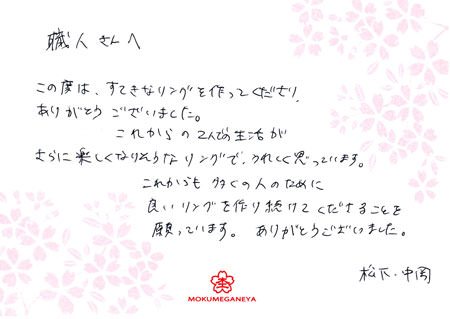 職人さんへ
この度は、すてきなリングを作ってくださり、
ありがとうございました。
これからの2人での生活が
さらに楽しくなりそうなリングで、うれしく思っています。
これからも多くの人のために
良いリングを作り続けてくださることを
願っています。ありがとうございました。
松下・中岡
MOKUMEGANEYA